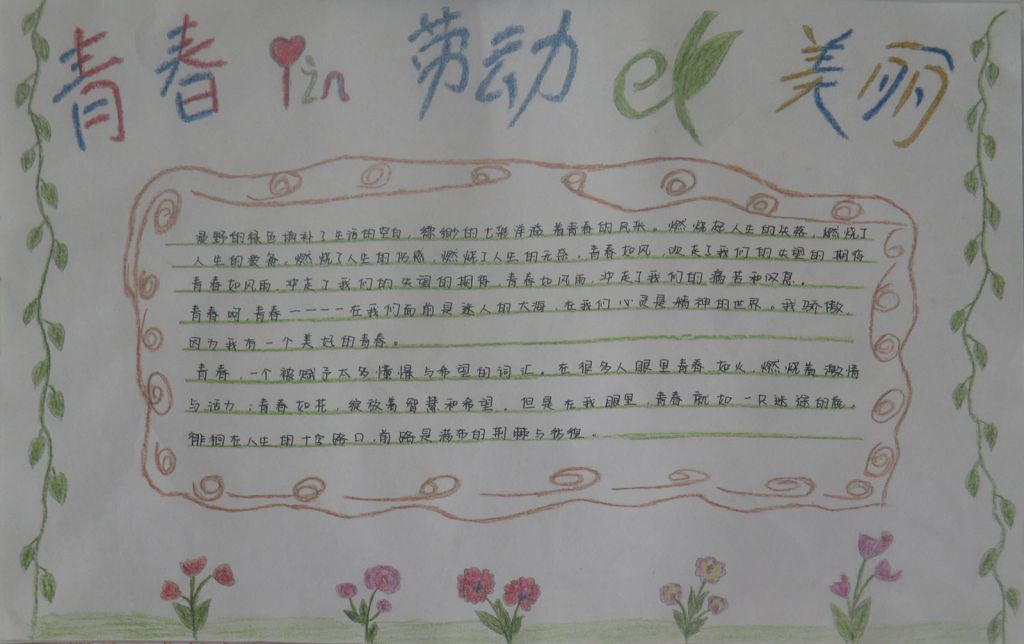 青春 in 劳动 el 美丽
旷野的绿色填补了生活的空白，缤纷的七彩洋溢着青春的风采。燃烧尽人生的失落，燃烧了
人生的疲惫，燃烧了人生的伤感，燃烧了人生的无奈，青春如风，吹走了我们的失望的期待
青春如风雨，冲走了我们的失望的期待，青春如风雨，冲走了我们的痛苦和叹息。
青春啊，青春一一一一在我们面前是迷人的大海，在我们心灵是精神的世界。我骄傲，
因为我有一个美好的青春。
青春，一个被赋予太多憧憬与希望的词汇。在很多人眼里青春如火，燃烧着激情
与活力；青春如花，绽放着智慧和希望。但是在我眼里，青春就如一只迷途的鹿，
徘徊在人生的十字路口，前路是满布的荆棘与彷徨。